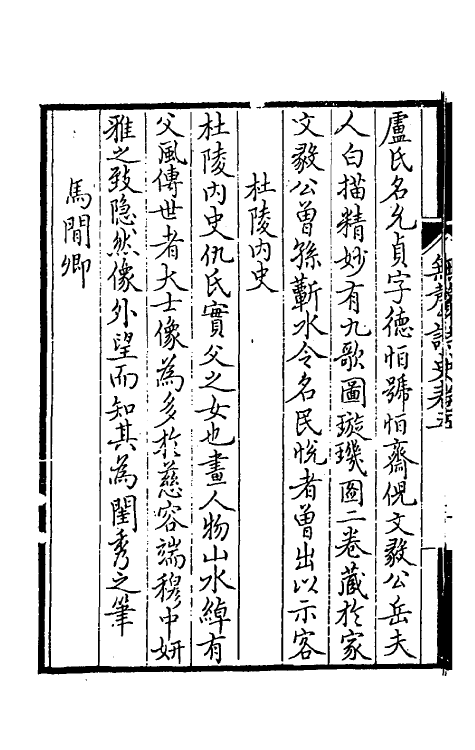 盧氏名允貞字德怡號怡齋倪文毅公岳夫
人白描精妙有九歌圖璇璣圖二卷藏於家
文毅公曾孫蘄水令名民悅者曾出以示客
杜陵內史
杜陵內史仇氏實父之女也畫人物山水綽有
父風傳世者大士像為多於慈容端穆中妍
雅之致隐然像外望而知其為閨秀之筆
馬閒卿
無聲詩史卷五